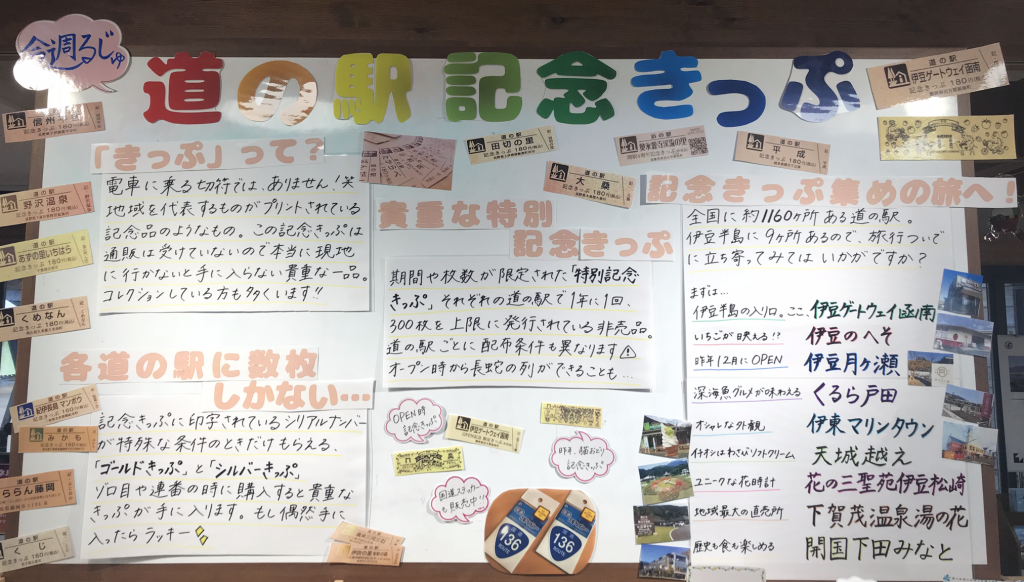 今調るじゅ
道の駅記念きっぷ
「きっぷ」って?
電車に乗る切符では、ありません!笑
地域を代表するものがプリントされている
記念品のようなもの。この記念きっぷは
通販は受けていないので本当に現地
に行かないと手に入らない貴重な一品。
コレクションしている方も多くいます!!
各道の駅に数枚
しかない…
記念きっぷに印字されているシリアルナンバー
が特殊な条件のときだけもらえる、
「ゴールドきっぷ」と「シルバーきっぷ」
ゾロ目や連番の時に購入すると貴重な
きっぷが手に入ります。もし偶然手に
入ったらラッキー
貴重な特別
記念きっぷ
期間や枚数が限定された「特別記念
きっぷ」それぞれの道の駅で1年に1回、
300枚を上限に発行されている非売品。
道の駅ごとに配布条件も異なります⚠
オープン時から長蛇の列ができることも…
OPEN時
記念きっぷ
昨年、猫おどり
記念きっぷ
国道ステッカー
も販売中!!
136
136
記念きっぷ集めの旅へ!
全国に約1160ヶ所ある道の駅。
伊豆半島に9ヶ所あるので、旅行ついで
に立ち寄ってみてはいかがですか?
まずは…
伊豆半島の入り口。ここ、伊豆ゲートウェイ函南
いちごが映える!? 伊豆のへそ
昨年12月にOPEN 伊豆月ヶ瀬
深海魚グルメが味わえる くるら戸田
オシャレな外観 伊東マリンタウン
イチオシはわさびソフトクリーム 天城越え
ユニークな花時計 花の三聖苑伊豆松崎
地域最大の直売所 下賀茂温泉湯の花
歴史も食も楽しめる 開国下田みなと
道の駅
野沢温泉
記念きっぷ 180円(税込)
道の駅
あずの里いちはら
記念きっぷ 180円(税込)
道の駅
くめなん
記念きっぷ 180円(税込)
道の駅
紀伊長島マンボウ
道の駅
みかも
道の駅
ららん藤岡
記念きっぷ 180円(税込)
道の駅
くじ
記念きっぷ 180円(税込)
道の駅
田切の里
記念きっぷ 180円(税込)
道の駅
大桑
記念きっぷ 180円(税込)
道の駅
平成
記念きっぷ 180円(税込)
道の駅
伊豆ゲートウェイ函南
記念きっぷ 180円(税込)
道の駅
伊豆ゲートウェイ函南